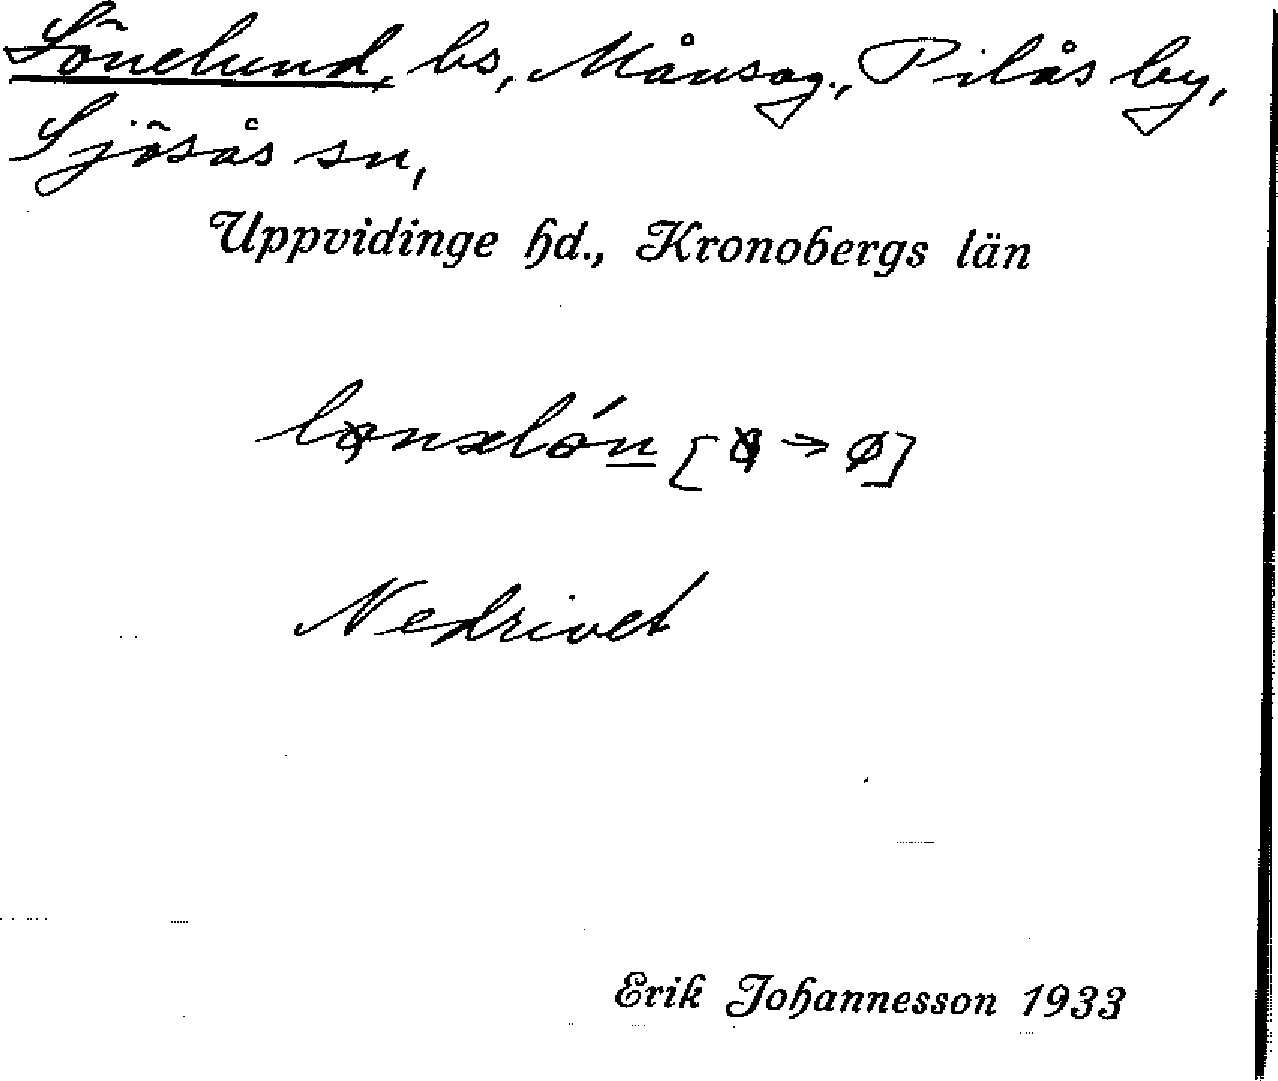 Lönelund, bs, Månsag., Pilås by,
Sjösås sn,
Uppvidinge hd., Kronobergs län
Nedrivet
Erik Johannesson 1933